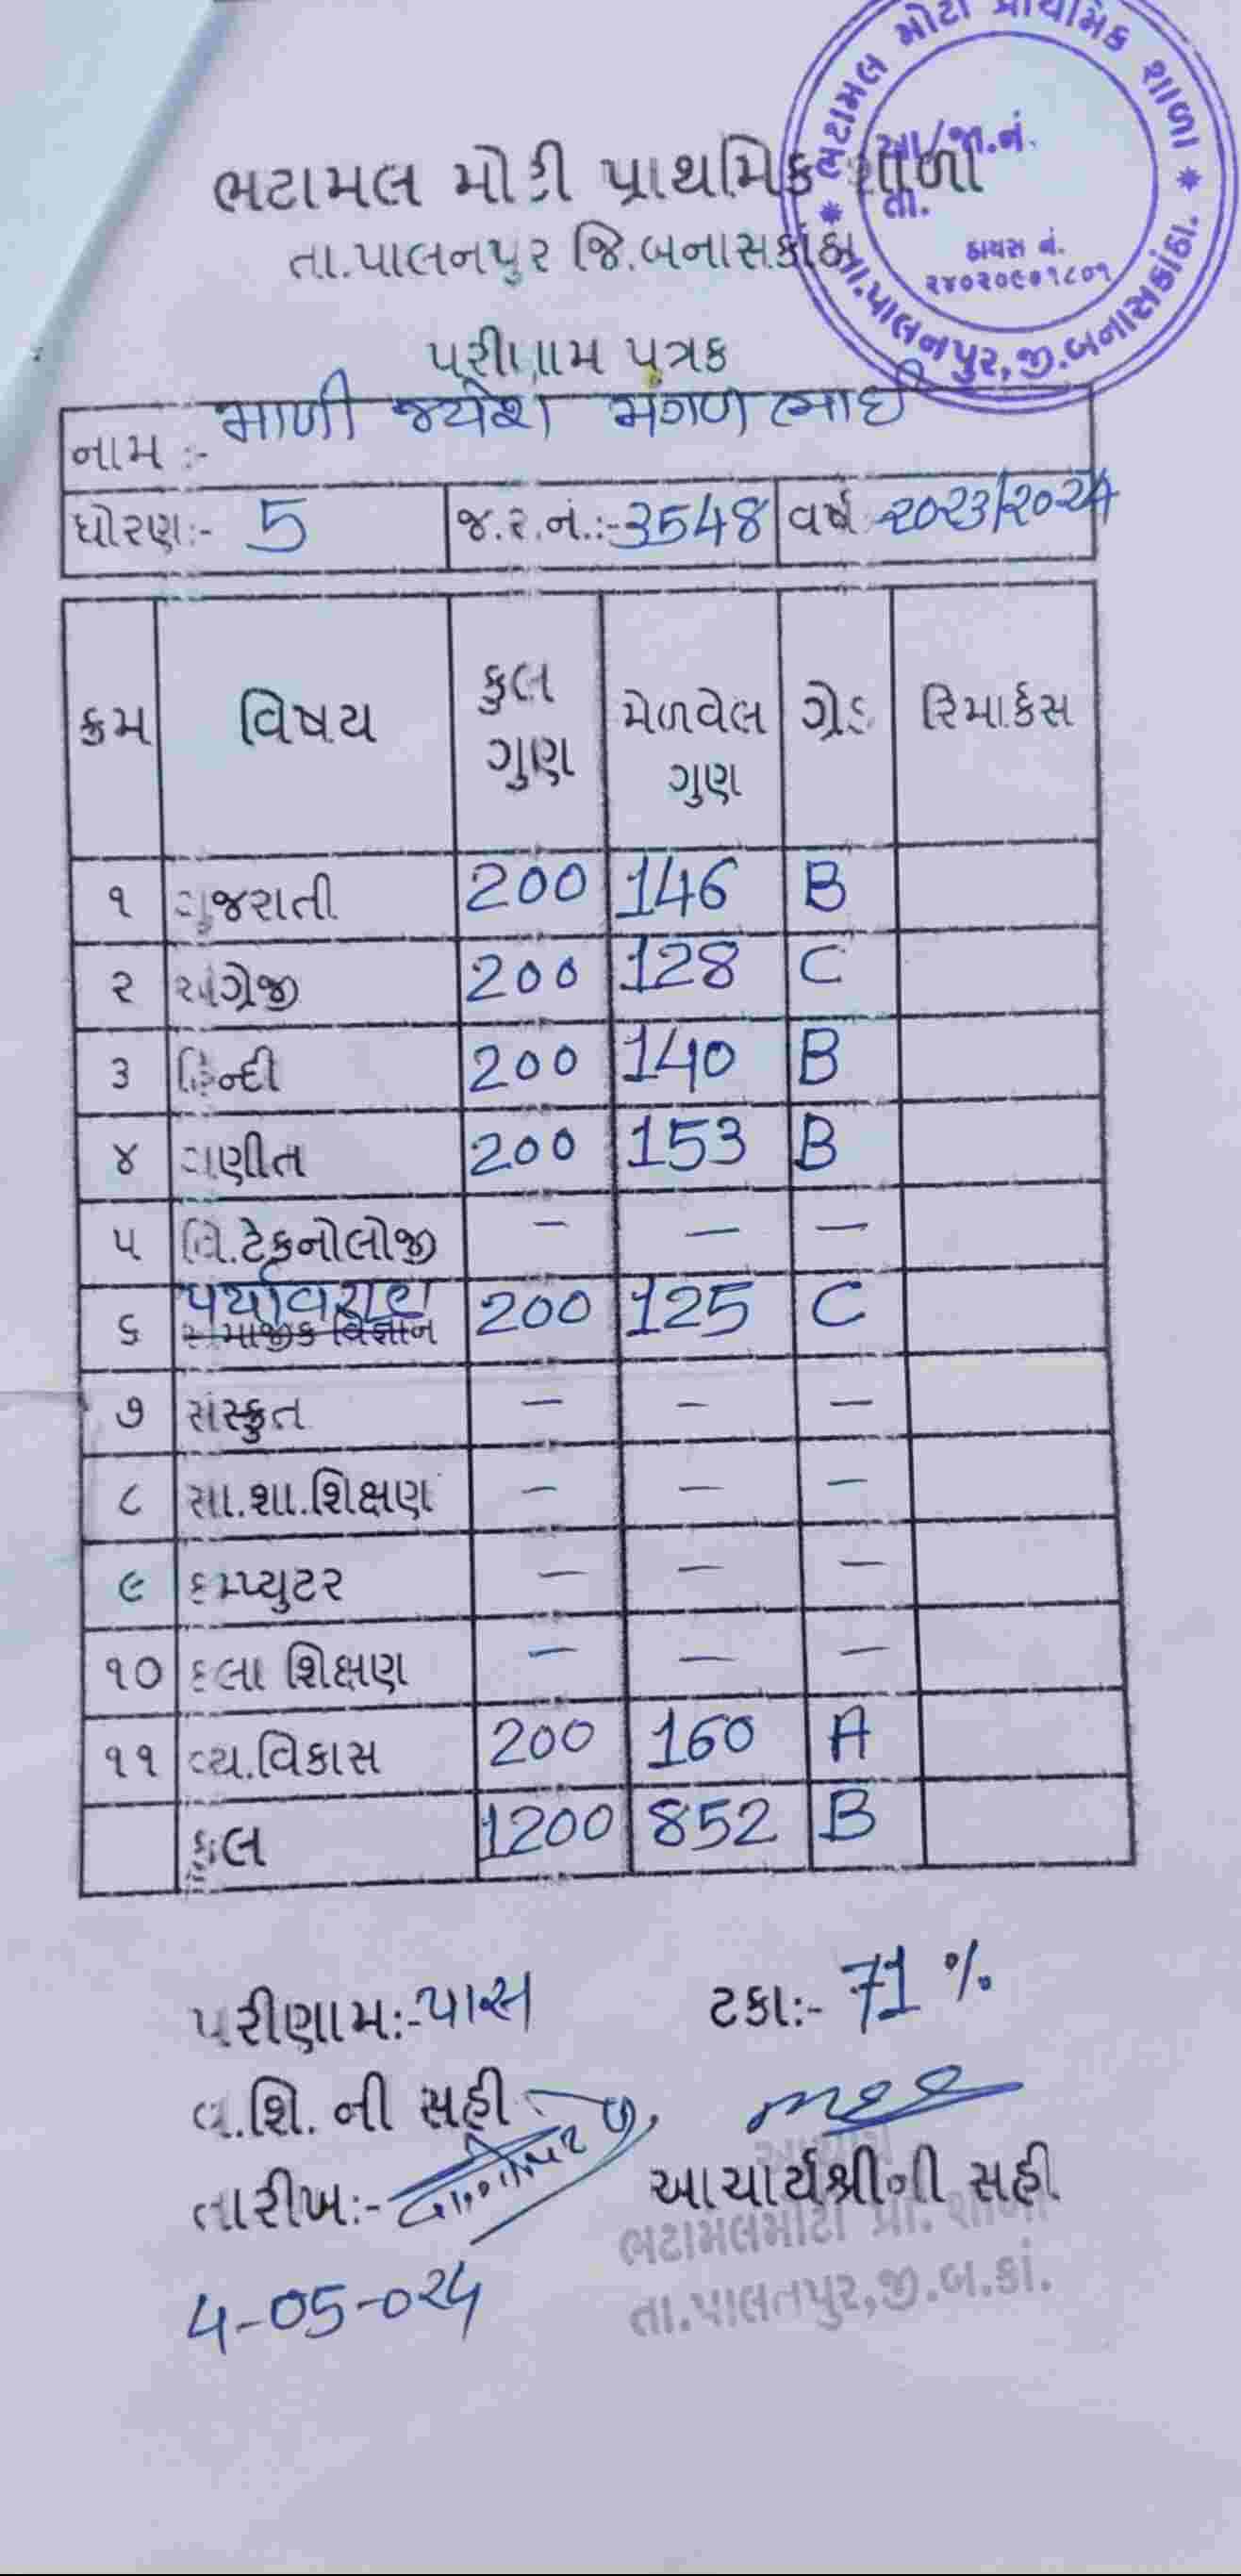 ભટામલ મોટી પ્રાથમિક શાળા
તા.પાલનપુર જિ.બનાસકાંઠા
ભટામલ મોટી પ્રાથમિક શાળા
આ/જા.નં.
તા.
ડાયસ નં.
તા.પાલનપુર, જી.બનાસકાંઠા.
પરીણામ પત્રક
નામ :- માળી જયેશ મંગળભાઈ
ધોરણ:- 5 જ.ર.નં.:- 3548 વર્ષ 2023/2024
ક્રમ વિષય કુલ ગુણ મેળવેલ ગુણ ગ્રેડ રિમાર્કસ
૧ ગુજરાતી 200 146 B
૨ અંગ્રેજી 200 128 C
૩ હિન્દી 200 140 B
૪ ગણીત 200 153 B
૫ વિ.ટેકનોલોજી - - -
પર્યાવરણ
૬ સામાજીક વિજ્ઞાન 200 125 C
૭ સંસ્કૃત - - -
૮ સા.શા.શિક્ષણ - - -
૯ કમ્પ્યુટર - - -
૧૦ કલા શિક્ષણ - - -
૧૧ વ્ય.વિકાસ 200 160 A
કુલ 1200 852 B
પરીણામ:- પાસ ટકા:- 71 %
વ.શિ. ની સહી
તારીખ:- આચાર્યશ્રીની સહી
4-05-024
ભટામલમોટી પ્રા. શાળા
તા.પાલનપુર,જી.બ.કાં.